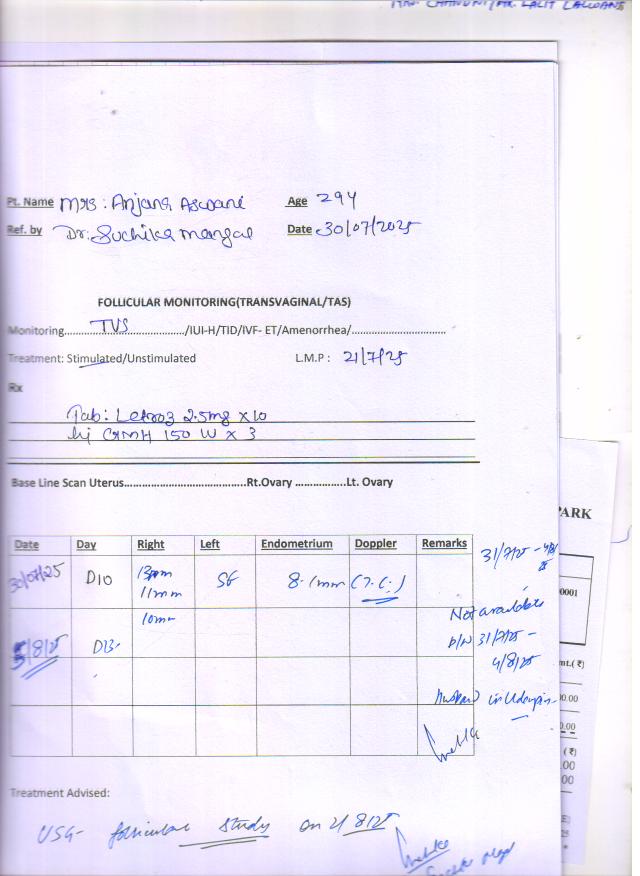 Pt. Name Mrs: Anjana Aswani Age 29Y
Ref. by Dr. Suchika Mangal Date 30/07/2025
FOLLICULAR MONITORING(TRANSVAGINAL/TAS)
Monitoring......TVS....../IUI-H/TID/IVF- ET/Amenorrhea/......
Treatment: Stimulated/Unstimulated L.M.P : 21/7/25
Rx
Tab: Letroz 2.5mg x 10
Inj GMH 150 IU x 3
Base Line Scan Uterus......Rt.Ovary ......Lt. Ovary
Date Day Right Left Endometrium Doppler Remarks
30/07/25 D10 13mm SF 8.1mm (T.L.)
11mm
10mm
31/7/25 - 4/8/25
Not available
b/w 31/7/25 -
4/8/25
5/8/25 D13
Husband in
Treatment Advised:
USG- follicular study on 2/8/25
PARK
0001
mt.( ₹)
00.00
0.00
( ₹)
.00
00